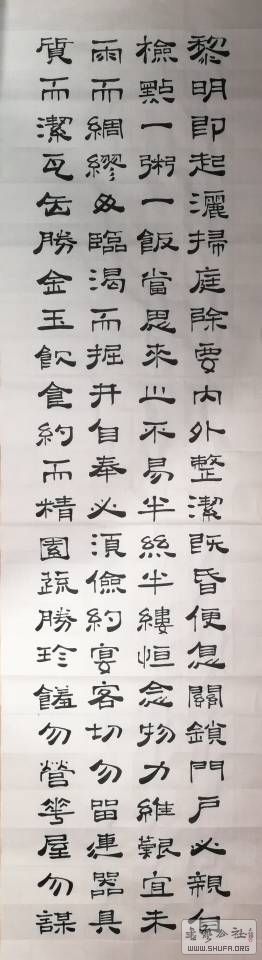 黎明即起灑掃庭除要內外整潔既昏便息關鎖門戶必親自
檢點一粥一飯當思來之不易半絲半縷恒念物力維艱宜未
雨而綢繆毋臨渴而掘井自奉必須儉約宴客切勿留連器具
質而潔瓦缶勝金玉飲食約而精園疏勝珍饈勿營華屋勿謀
书法公社
WWW.SHUFA.ORG